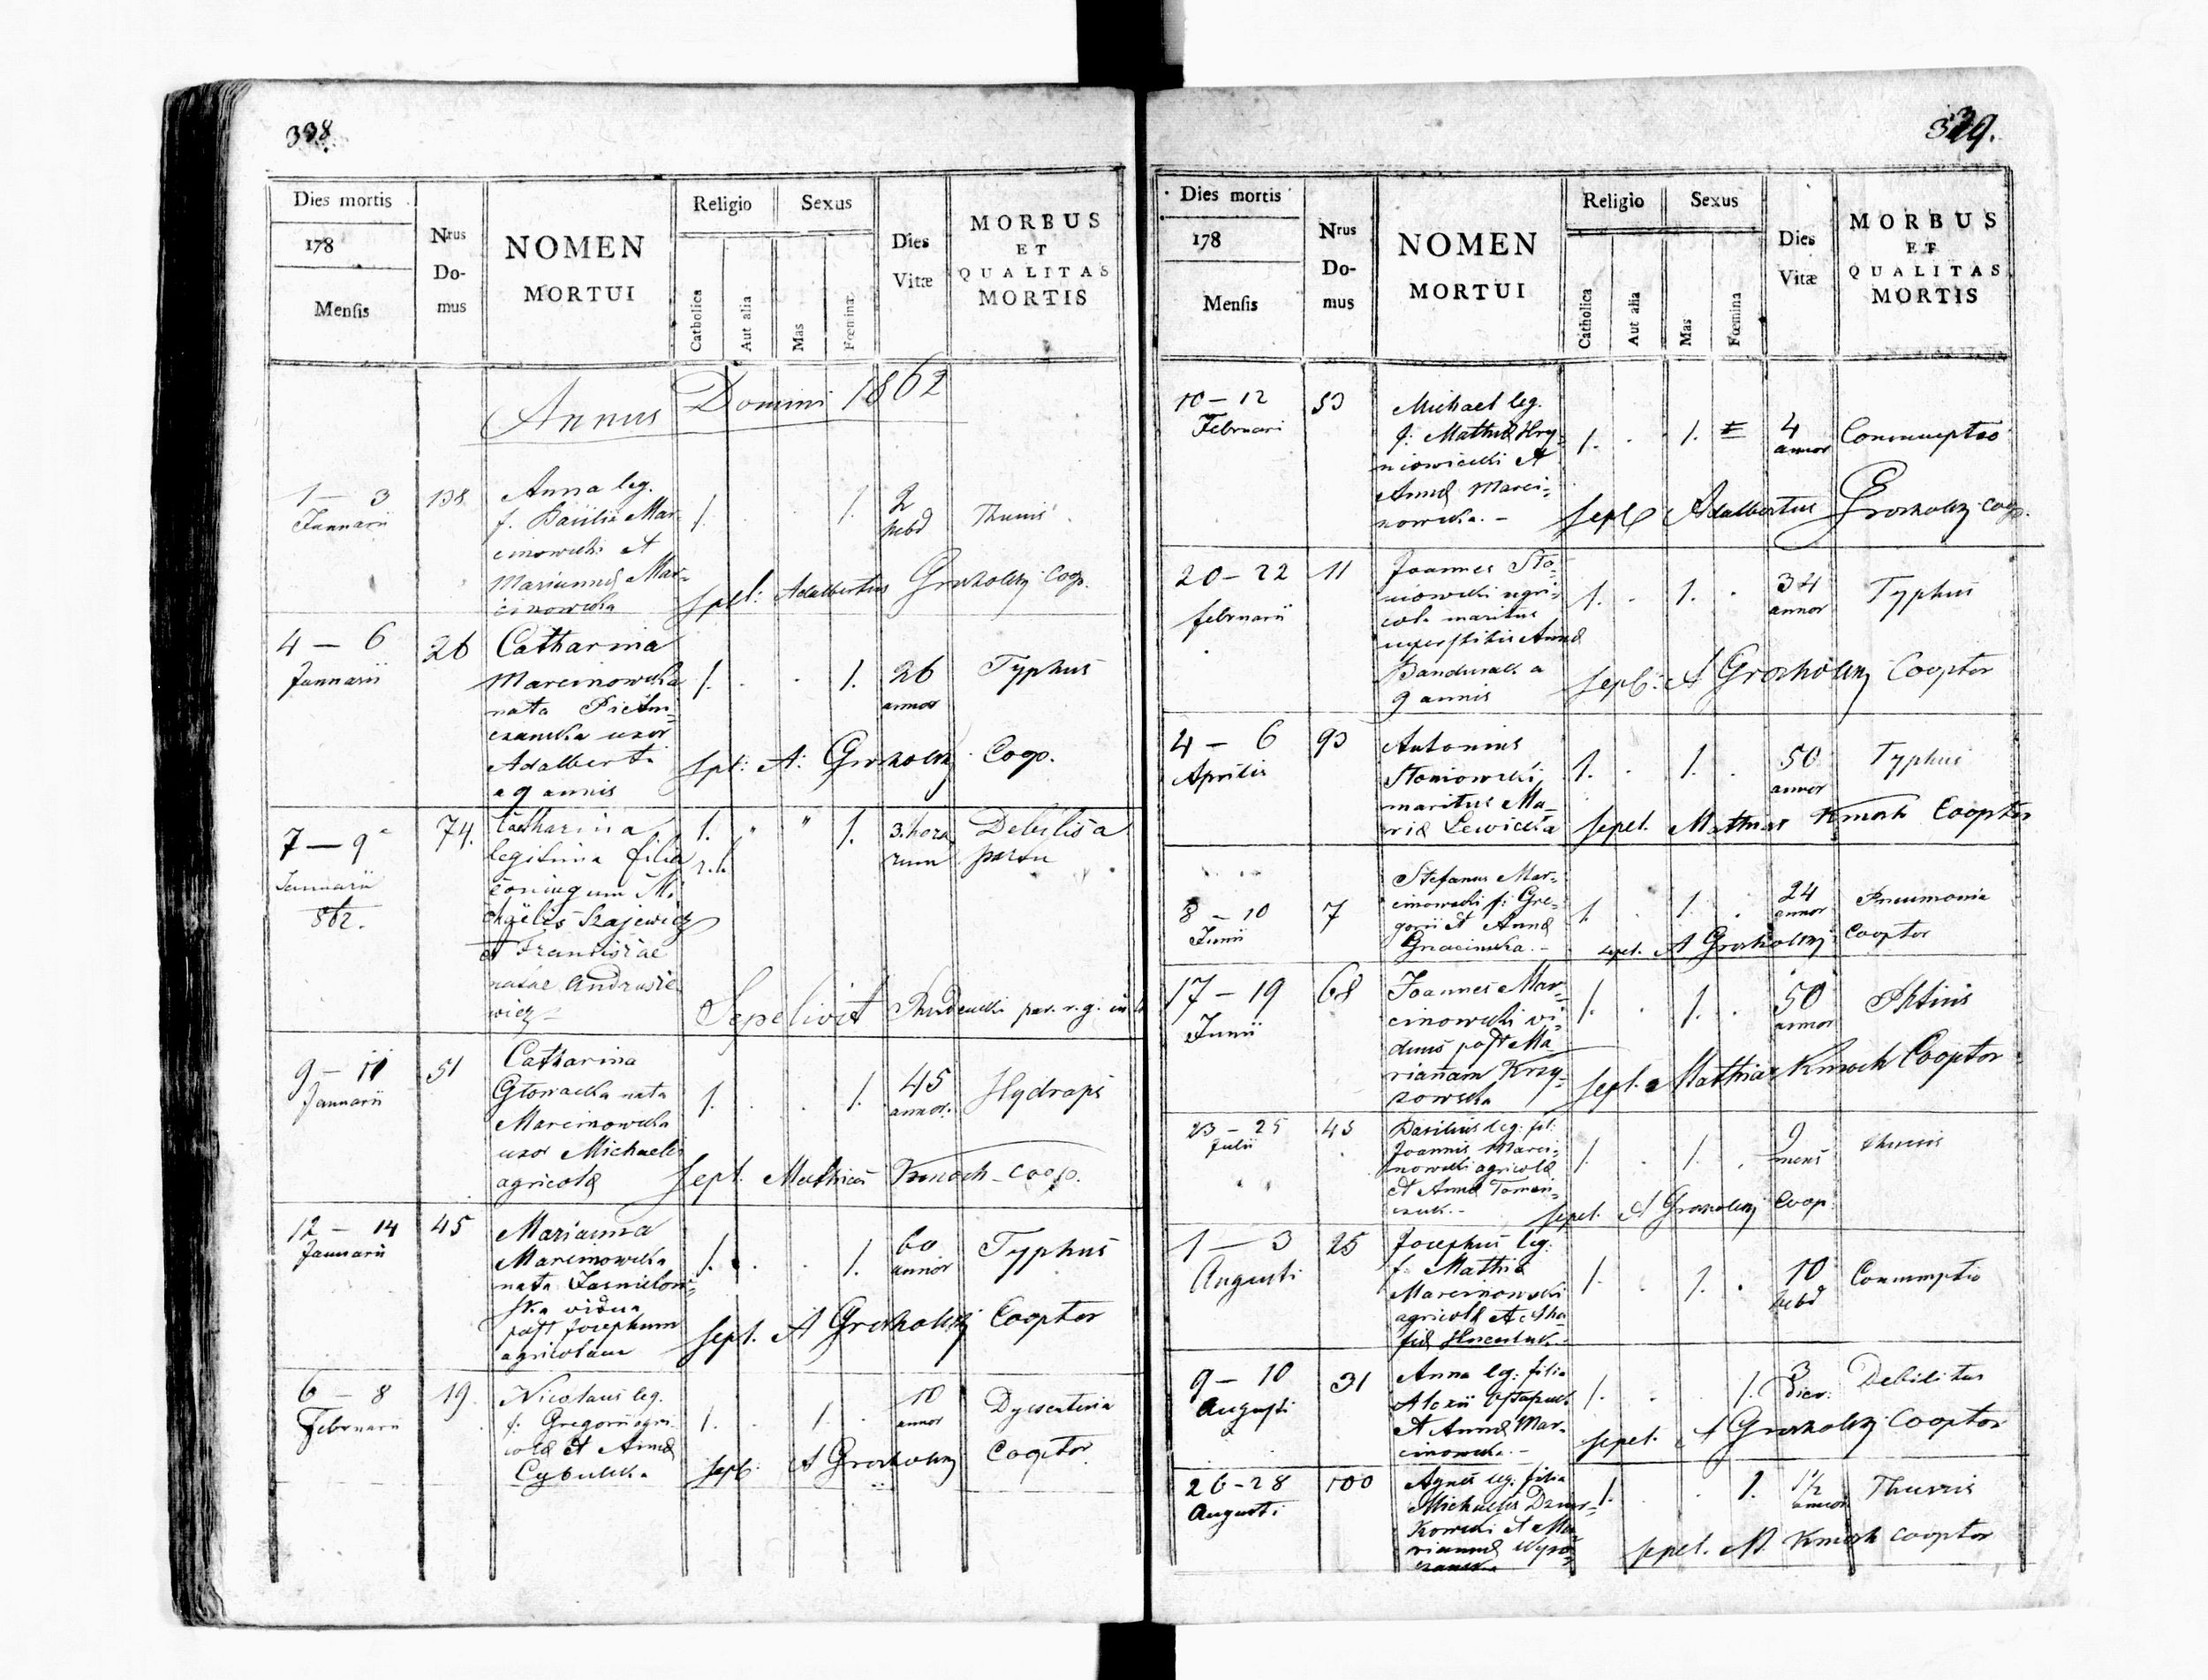 338.
Dies mortis
178
Mensis
Nrus
Do-
mus
NOMEN
MORTUI
Religio
Sexus
Catholica
Aut alia
Mas
Fœmina
Dies
Vitæ
MORBUS
ET
QUALITAS
MORTIS
Annus Domini 1862
1 — 3
Januarii
138
Anna leg.
f. Basilii Mar-
cinowski et
Mariannæ Mar-
cinowska
1. 1.
2
hebd
Thussis
sepel: Adalbertus Coop.
4 — 6
Januarii
26
Catharina
Marcinowska
nata
uxor
Adalberti
a 9 annis
1. . . 1.
26
annor
Typhus
spl: A: Coop.
7 — 9
Januarii
862.
74.
Catharina
legitima filia
coniugum Mi-
chaelis Szajewicz
et Franciscae
natae Andrusie
wicz
1. " " 1.
r.l.
3. hora
rum
Debilis a
partu
Sepelivit par. r.g.
9 — 11
Januarii
51
Catharina
Głowacka nata
Marcinowska
uxor Michaelis
agricolæ
1. . . 1.
45
annor.
Hydrops
Sepl. Mathias Kmoch coop.
12 — 14
Januarii
45
Marianna
Marcinowska
nata
ska vidua
post Josephum
agricolam
1. . . 1.
60
annor
Typhus
Sepl. A Cooptor
6 — 8
Februarii
19
Nicolaus leg.
f: Gregorii agri-
colæ et Annæ
Cybulska
1. . 1. .
10
annor
Dyssenteria
sepl: A Cooptor
339.
Dies mortis
178
Mensis
Nrus
Do-
mus
NOMEN
MORTUI
Religio
Sexus
Catholica
Aut alia
Mas
Fœmina
Dies
Vitæ
MORBUS
ET
QUALITAS
MORTIS
10 — 12
Februari
53
Michael leg.
f: Mathiæ Hry-
niowiecki et
Annæ Marci-
nowska. -
1. . 1.
4
annor
Consumptio
sepl Adalbertus coop.
20 — 22
februarii
11
Joannes Sło-
niowski agri-
cola maritus
superstitis Annæ
a
9 annis
1. . 1. .
34
annor
Typhus
sepl: A Cooptor
4 — 6
Aprilis
93
Antonius
Słoniowski
maritus Ma-
riæ Lewicka
1. . 1. .
50
annor
Typhus
sepel. Mathias Kmoch Cooptor
8 — 10
Junii
7
Stefanus Mar-
cinowski f: Gre-
gorii et Annæ
1. . 1. .
24
annor
Pneumonia
sepel. A Cooptor
17 — 19
Junii
68
Joannes Mar-
cinowski vi-
duus post Ma
riannam Krzy-
zowska
1. . 1. .
50
annor
Phtisis
sepl. Mathias Kmoch Cooptor
23 — 25
Julii
45
Basilius leg: fil:
Joannis Marci-
nowski agricolæ
et Annæ
1. . 1. .
9
mens
thussis
sepel. A Coop.
1 — 3
Augusti
25
Josephus leg:
f: Mathiæ
Marcinowski
agricolæ et
1. . 1. .
10
hebd
Consumptio
9 — 10
Augusti
31
Anna leg: filia
Alexii
et Annæ Mar-
cinowska. -
1. . . 1.
3
dier:
Debilitas
sepel. A Cooptor
26 - 28
Augusti
100
Agnes leg: filia
Michaelis
et Ma-
riannæ
1. . . 1.
1½
annor
Thussis
sepel. M. Kmoch cooptor